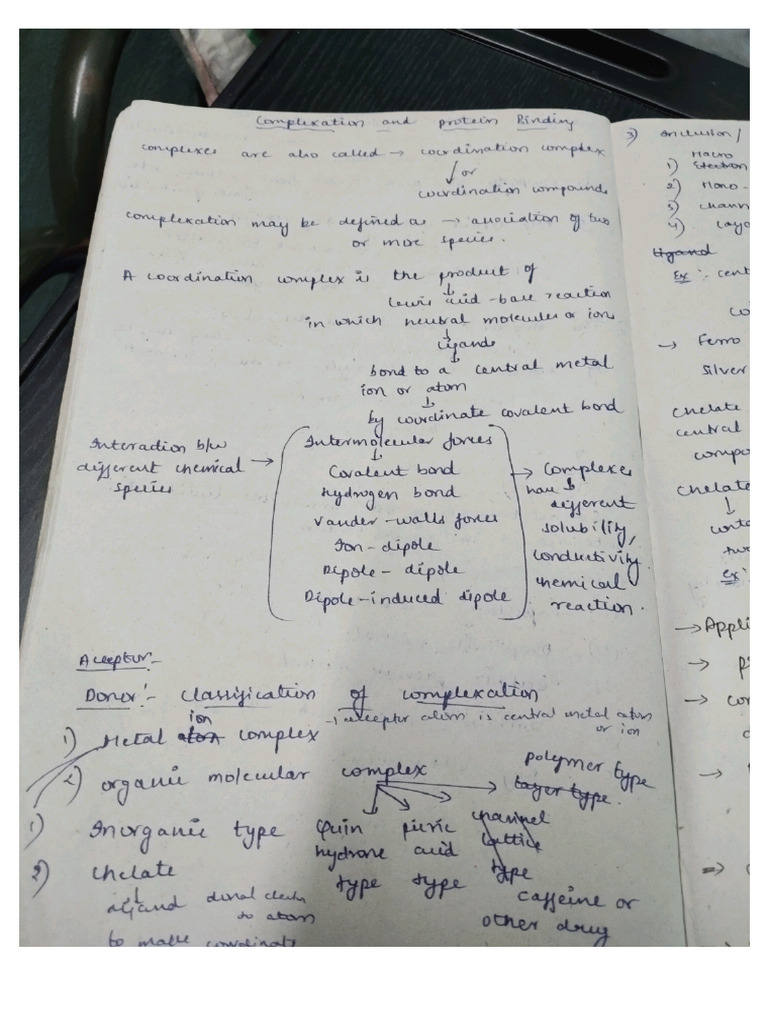 Complexation and protein Binding
complexes are also called → coordination complex
or
coordination compounds
complexation may be defined as → association of two
or more species.
A coordination complex is the product of
↓
Lewis acid-base reaction
in which neutral molecules or ions
↓
ligands
↓
bond to a central metal
ion or atom
↓
by coordinate covalent bond
Interaction b/w
different chemical
species
→
Intermolecular forces
↓
Covalent bond
Hydrogen bond
Vander-walls forces
Ion-dipole
Dipole-dipole
Dipole-induced dipole
→ Complexes
have ↓
different
solubility,
conductivity
chemical
reaction.
Acceptor:-
Donor:- Classification of complexation
→ acceptor atom is central metal atom
or ion
1) Metal ion atom complex
2) organic molecular complex
polymer type
layer type.
1) Inorganic type
Quin
hydrone
type
picric
acid
type
channel
lattice
type
2) chelate
↓
ligand donal
to atom
to make
caffeine or
other drug
3) Inclusion/
Macro
1)
2) Mono-
3) chann
4) Laye
Ligand
Ex:- cent
co
→ Ferro
Silver
Chelate
central
compo
chelate
↓
conta
two
Ex:-
→ Appli
→ p
→ con
→
⇒